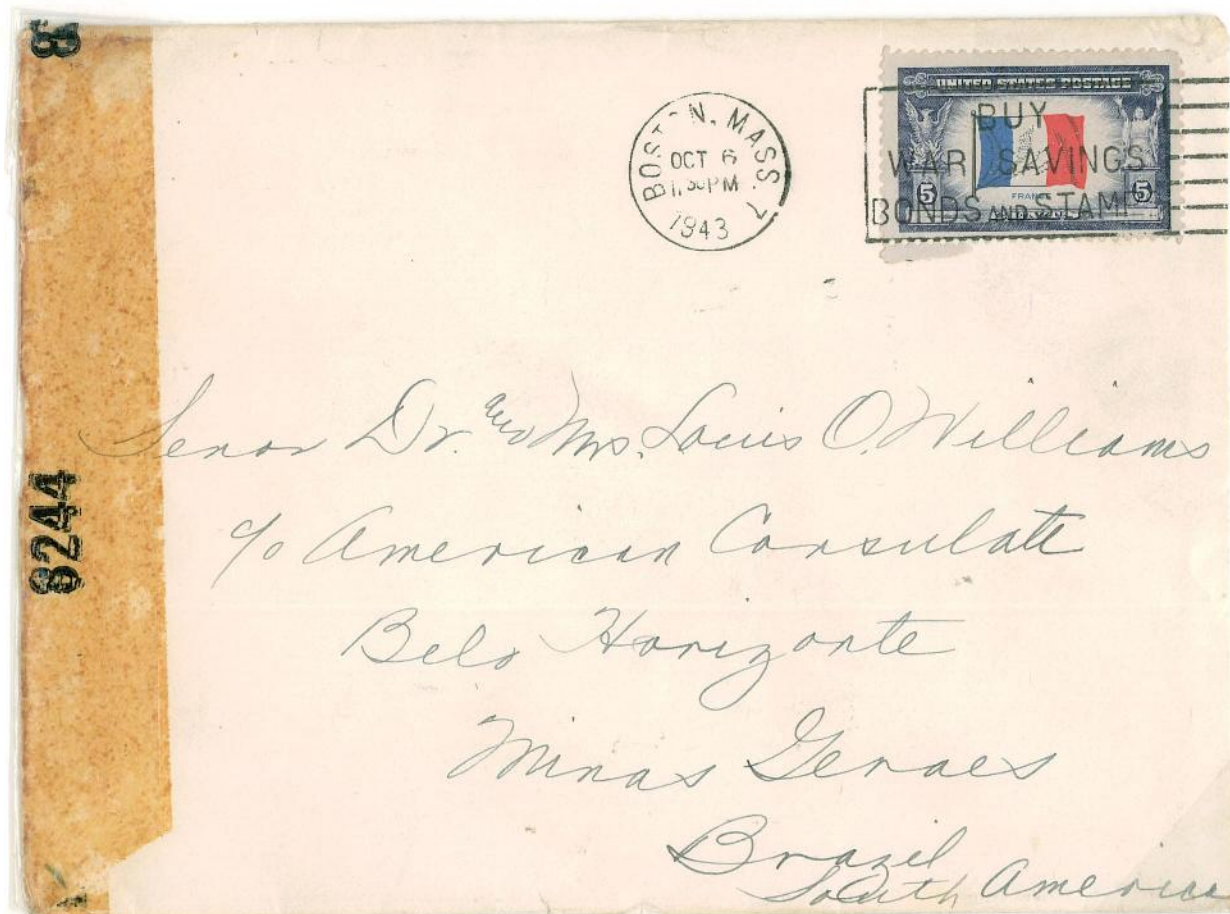 BOSTON, MASS. 7
OCT 6
1:30 PM
1943
UNITED STATES POSTAGE
BUY
WAR SAVINGS
BONDS AND STAMPS
5 5
FRANCE
8244
Senor Dr. and Mrs. Louis O. Williams
c/o American Consulate
Belo Horizonte
Minas Geraes
Brazil
South America